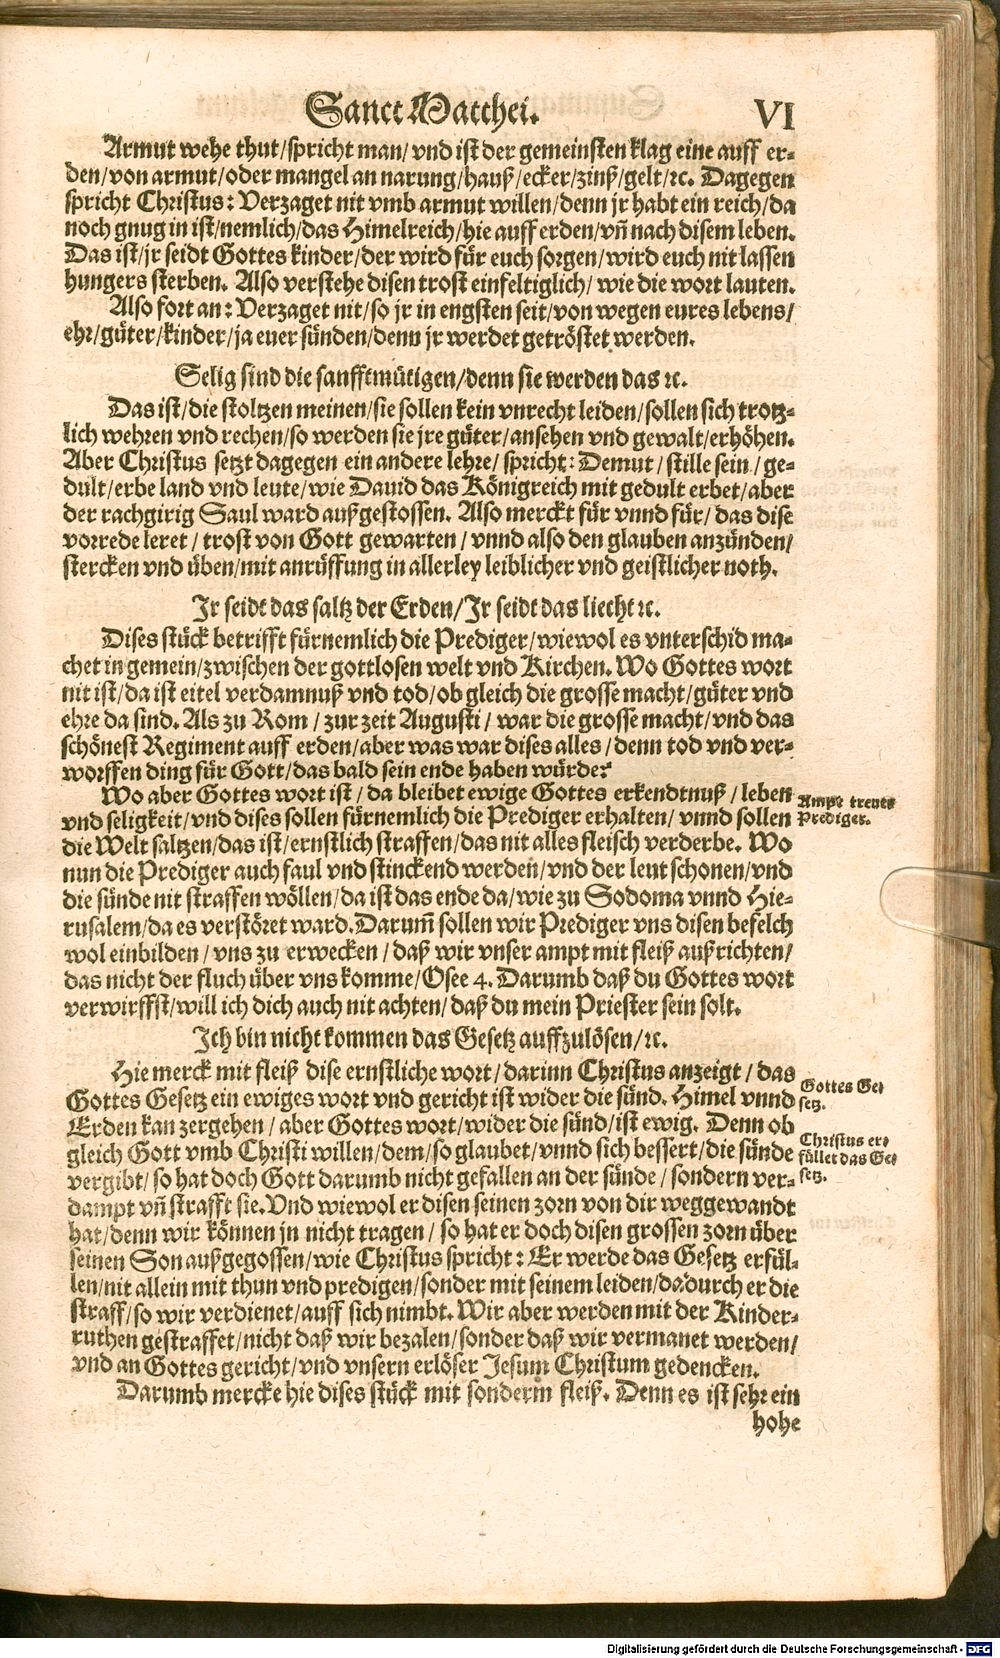 Sanct Matthei. VI
Armut wehe thut/spricht man/vnd ist der gemeinsten klag eine auff er-
den/von armut/oder mangel an narung/hauß/ecker/zinß/gelt/ꝛc. Dagegen
spricht Christus: Verzaget nit vmb armut willen/denn jr habt ein reich/da
noch gnug in ist/nemlich/das Himelreich/hie auff erden/vñ nach disem leben.
Das ist/jr seidt Gottes kinder/der wird für euch sorgen/wird euch nit lassen
hungers sterben. Also verstehe disen trost einfeltiglich/wie die wort lauten.
Also fort an: Verzaget nit/so jr in engsten seit/von wegen eures lebens/
ehr/güter/kinder/ja euer sünden/denn jr werdet getröstet werden.
Selig sind die sanfftmütigen/denn sie werden das ꝛc.
Das ist/die stoltzen meinen/sie sollen kein vnrecht leiden/sollen sich trotz-
lich wehren vnd rechen/so werden sie jre güter/ansehen vnd gewalt/erhöhen.
Aber Christus setzt dagegen ein andere lehre/spricht: Demut/stille sein/ge-
dult/erbe land vnd leute/wie Dauid das Königreich mit gedult erbet/aber
der rachgirig Saul ward außgestossen. Also merckt für vnnd für/das dise
vorrede leret/trost von Gott gewarten/vnnd also den glauben anzünden/
stercken vnd üben/mit anrüffung in allerley leiblicher vnd geistlicher noth.
Jr seidt das saltz der Erden/Jr seidt das liecht ꝛc.
Dises stück betrifft fürnemlich die Prediger/wiewol es vnterschid ma-
chet in gemein/zwischen der gottlosen welt vnd Kirchen. Wo Gottes wort
nit ist/da ist eitel verdamnuß vnd tod/ob gleich die grosse macht/güter vnd
ehre da sind. Als zu Rom/zur zeit Augusti/war die grosse macht/vnd das
schönest Regiment auff erden/aber was war dises alles/denn tod vnd ver-
worffen ding für Gott/das bald sein ende haben würde?
Wo aber Gottes wort ist/da bleibet ewige Gottes erkendtnuß/leben
vnd seligkeit/vnd dises sollen fürnemlich die Prediger erhalten/vnnd sollen
die Welt saltzen/das ist/ernstlich straffen/das nit alles fleisch verderbe. Wo
nun die Prediger auch faul vnd stinckend werden/vnd der leut schonen/vnd
die sünde nit straffen wöllen/da ist das ende da/wie zu Sodoma vnnd Hie-
rusalem/da es verstöret ward. Darum̃ sollen wir Prediger vns disen befelch
wol einbilden/vns zu erwecken/daß wir vnser ampt mit fleiß außrichten/
das nicht der fluch über vns komme/Osee 4. Darumb daß du Gottes wort
verwirffst/will ich dich auch nit achten/daß du mein Priester sein solt.
Ampt treuer
Prediger.
Ich bin nicht kommen das Gesetz auffzulösen/ꝛc.
Hie merck mit fleiß dise ernstliche wort/darinn Christus anzeigt/das
Gottes Gesetz ein ewiges wort vnd gericht ist wider die sünd. Himel vnnd
Erden kan zergehen/aber Gottes wort/wider die sünd/ist ewig. Denn ob
gleich Gott vmb Christi willen/dem/so glaubet/vnnd sich bessert/die sünde
vergibt/so hat doch Gott darumb nicht gefallen an der sünde/sondern ver-
dampt vñ strafft sie. Vnd wiewol er disen seinen zorn von dir weggewandt
hat/denn wir können jn nicht tragen/so hat er doch disen grossen zorn über
seinen Son außgegossen/wie Christus spricht: Er werde das Gesetz erfül-
len/nit allein mit thun vnd predigen/sonder mit seinem leiden/dadurch er die
straff/so wir verdienet/auff sich nimbt. Wir aber werden mit der Kinder-
ruthen gestraffet/nicht daß wir bezalen/sonder daß wir vermanet werden/
vnd an Gottes gericht/vnd vnsern erlöser Jesum Christum gedencken.
Gottes Ge-
setz.
Christus er-
füllet das Ge-
setz.
Darumb mercke hie dises stück mit sonderm fleiß. Denn es ist sehr ein
hohe
Digitalisierung gefördert durch die Deutsche Forschungsgemeinschaft - DFG